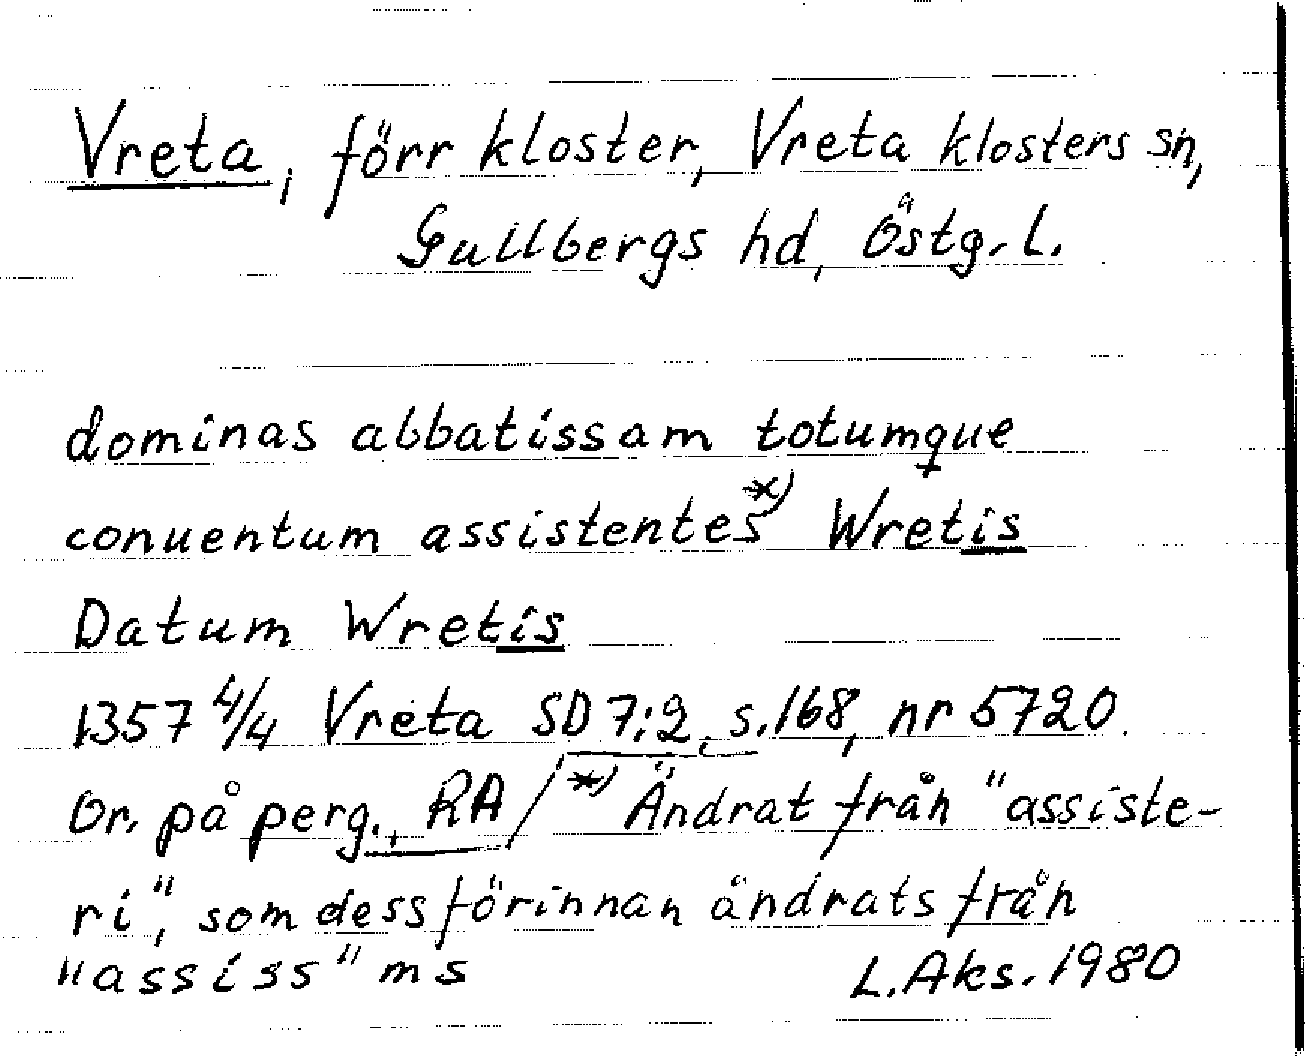 Vreta, förr kloster, Vreta klosters sn,
Gullbergs hd, Östg. L.
dominas abbatissam totumque
conuentum assistentes*) Wretis
Datum Wretis
1357 4/4 Vreta SD 7:2, s.168, nr 5720.
Or. på perg., RA / *) Ändrat från "assiste-
ri", som dessförinnan ändrats från
"assiss" m s
L. Aks. 1980